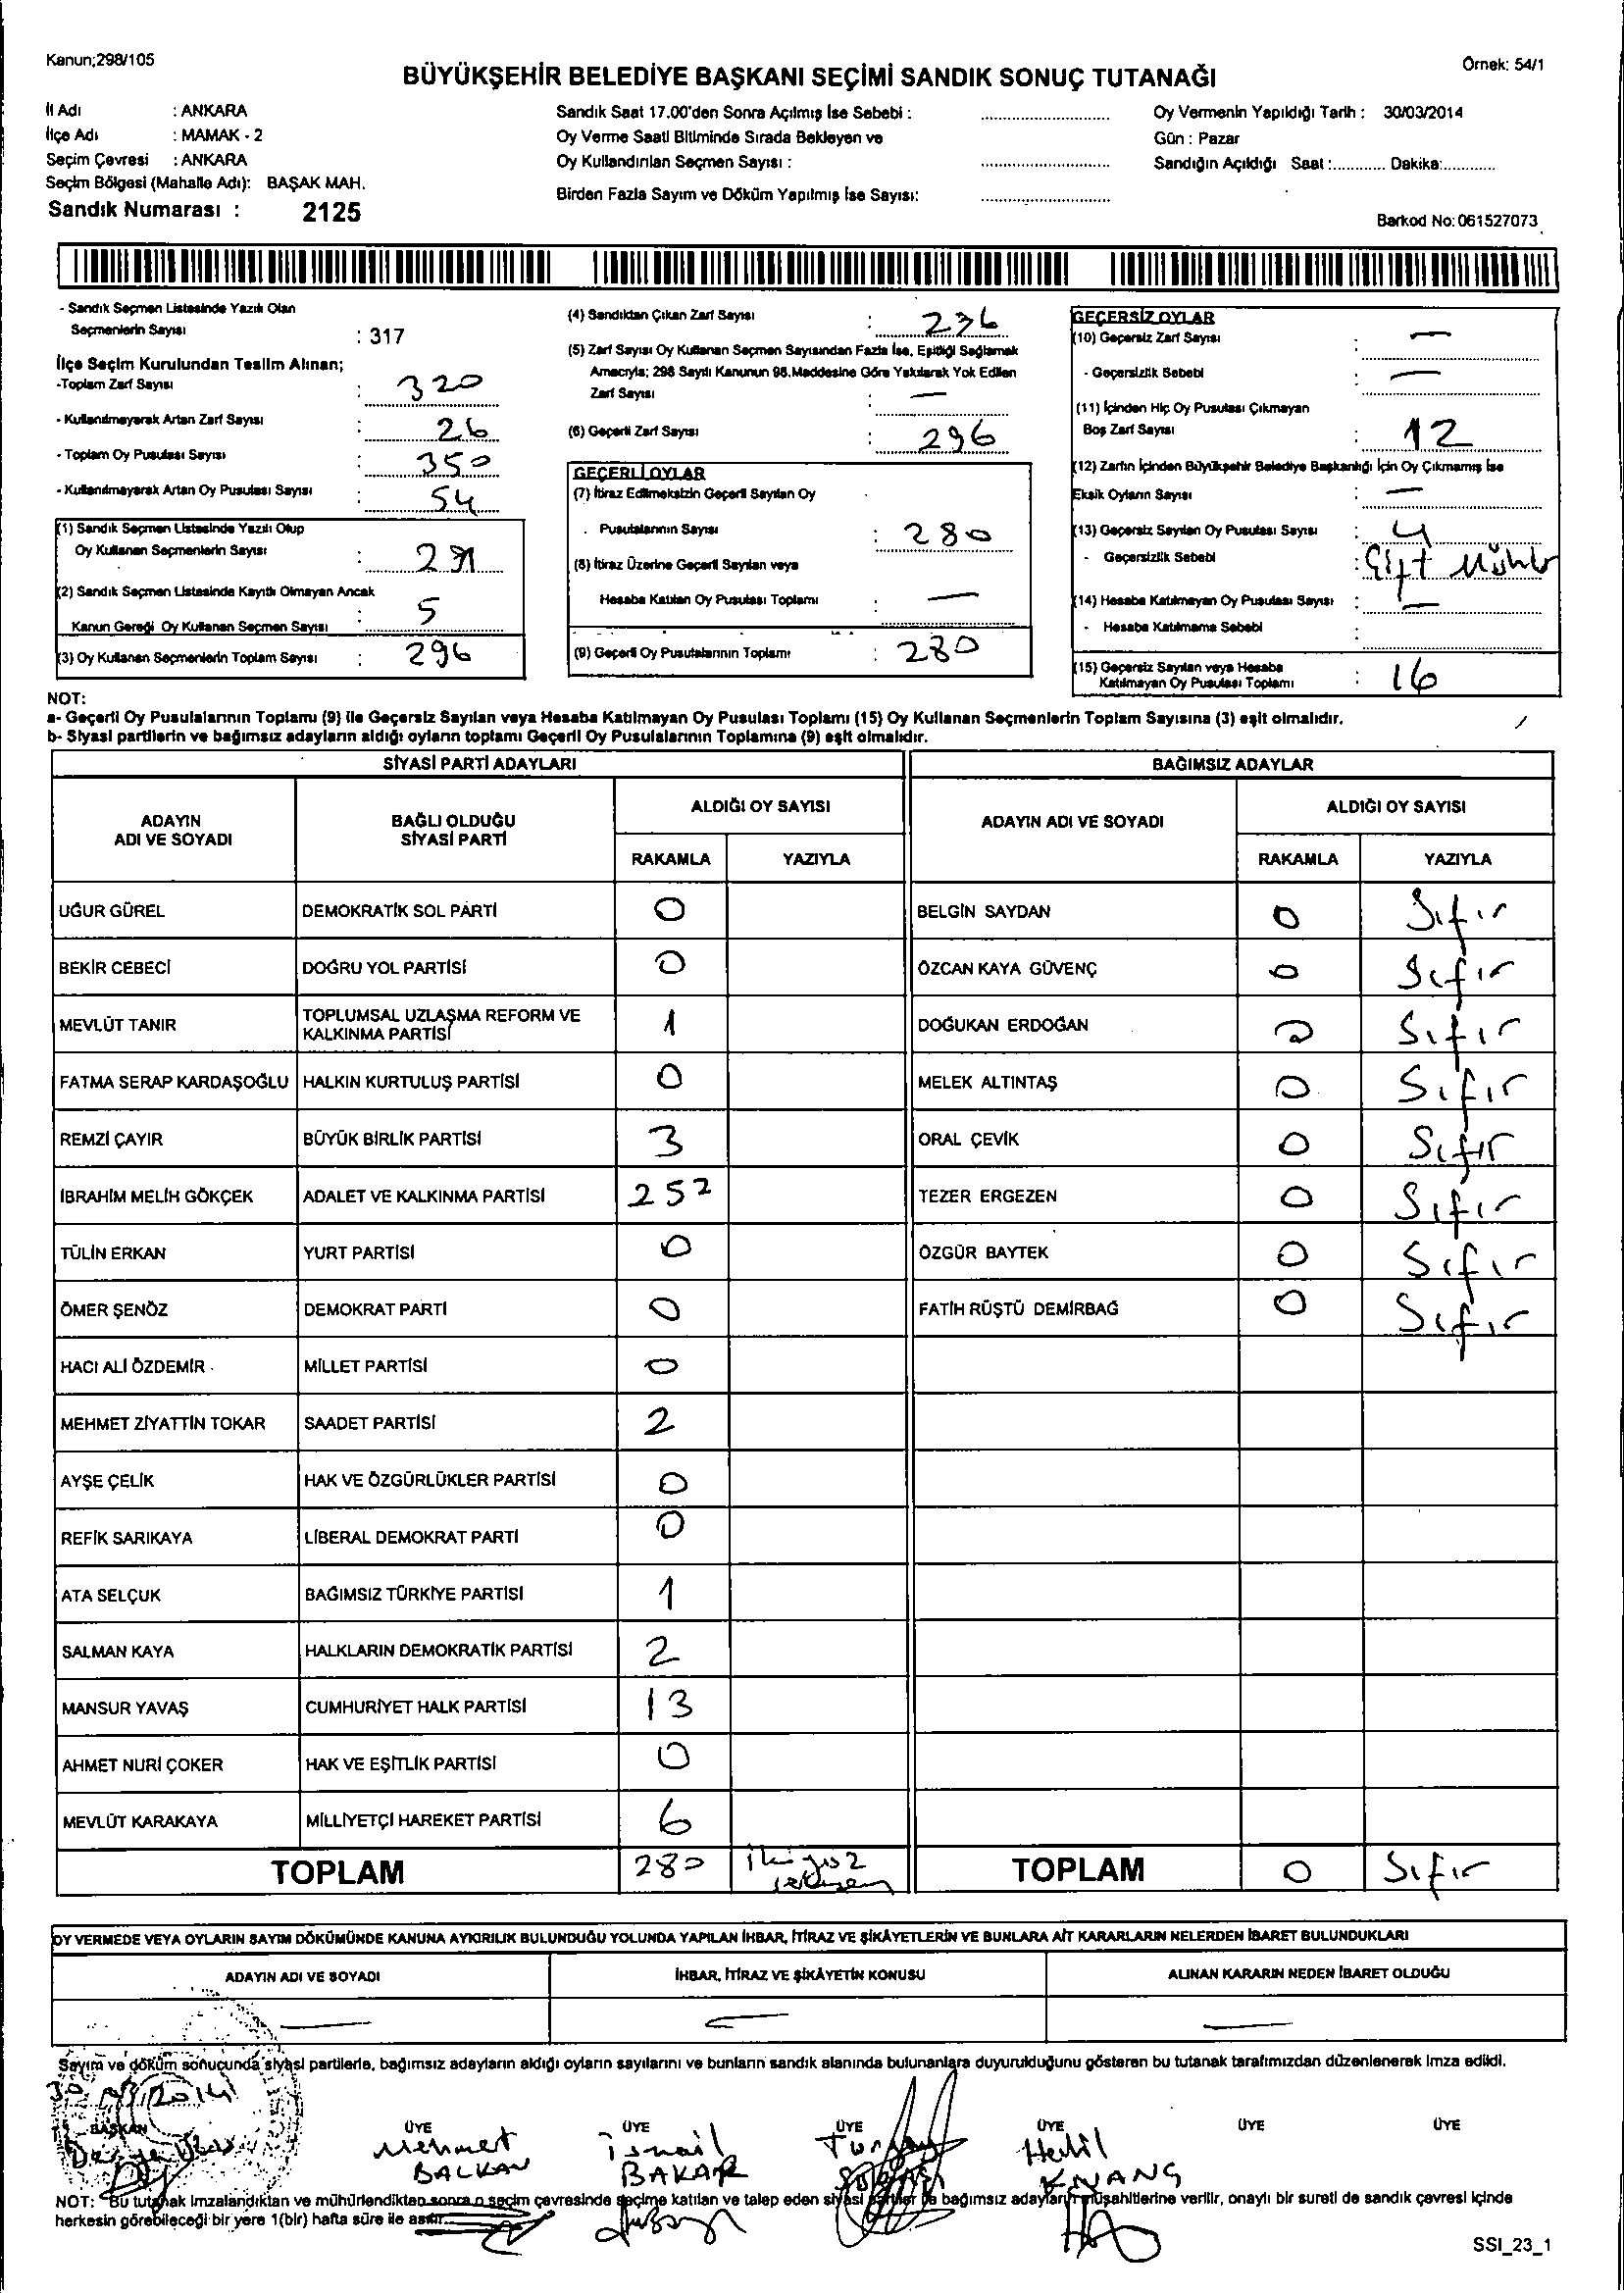 Kanun;298/105
Örnek: 54/1
BÜYÜKŞEHİR BELEDİYE BAŞKANI SEÇİMİ SANDIK SONUÇ TUTANAĞI
İl Adı : ANKARA
İlçe Adı : MAMAK - 2
Seçim Çevresi : ANKARA
Seçim Bölgesi (Mahalle Adı): BAŞAK MAH.
Sandık Numarası : 2125
Sandık Saat 17.00'den Sonra Açılmış İse Sebebi :
Oy Verme Saati Bitiminde Sırada Bekleyen ve
Oy Kullandırılan Seçmen Sayısı :
Birden Fazla Sayım ve Döküm Yapılmış İse Sayısı:
Oy Vermenin Yapıldığı Tarih : 30/03/2014
Gün : Pazar
Sandığın Açıldığı Saat :............. Dakika:.............
Barkod No:061527073
- Sandık Seçmen Listesinde Yazılı Olan
Seçmenlerin Sayısı : 317
İlçe Seçim Kurulundan Teslim Alınan;
-Toplam Zarf Sayısı : 320
- Kullanılmayarak Artan Zarf Sayısı : 26
- Toplam Oy Pusulası Sayısı : 350
- Kullanılmayarak Artan Oy Pusulası Sayısı : 54
(1) Sandık Seçmen Listesinde Yazılı Olup
Oy Kullanan Seçmenlerin Sayısı : 291
(2) Sandık Seçmen Listesinde Kayıtlı Olmayan Ancak
Kanun Gereği Oy Kullanan Seçmen Sayısı : 5
(3) Oy Kullanan Seçmenlerin Toplam Sayısı : 296
(4) Sandıktan Çıkan Zarf Sayısı : 296
(5) Zarf Sayısı Oy Kullanan Seçmen Sayısından Fazla İse, Eşitliği Sağlamak
Amacıyla; 298 Sayılı Kanunun 98.Maddesine Göre Yakılarak Yok Edilen
Zarf Sayısı : —
(6) Geçerli Zarf Sayısı : 296
GEÇERLİ OYLAR
(7) İtiraz Edilmeksizin Geçerli Sayılan Oy
Pusulalarının Sayısı : 280
(8) İtiraz Üzerine Geçerli Sayılan veya
Hesaba Katılan Oy Pusulası Toplamı : —
(9) Geçerli Oy Pusulalarının Toplamı : 280
GEÇERSİZ OYLAR
(10) Geçersiz Zarf Sayısı : —
- Geçersizlik Sebebi : —
(11) İçinden Hiç Oy Pusulası Çıkmayan
Boş Zarf Sayısı : 12
(12) Zarfın İçinden Büyükşehir Belediye Başkanlığı İçin Oy Çıkmamış İse
Eksik Oyların Sayısı : —
(13) Geçersiz Sayılan Oy Pusulası Sayısı : 4
- Geçersizlik Sebebi : Çift
(14) Hesaba Katılmayan Oy Pusulası Sayısı : —
- Hesaba Katılmama Sebebi :
(15) Geçersiz Sayılan veya Hesaba
Katılmayan Oy Pusulası Toplamı : 16
NOT:
a- Geçerli Oy Pusulalarının Toplamı (9) ile Geçersiz Sayılan veya Hesaba Katılmayan Oy Pusulası Toplamı (15) Oy Kullanan Seçmenlerin Toplam Sayısına (3) eşit olmalıdır.
b- Siyasi partilerin ve bağımsız adayların aldığı oyların toplamı Geçerli Oy Pusulalarının Toplamına (9) eşit olmalıdır.
SİYASİ PARTİ ADAYLARI
ADAYIN ADI VE SOYADI
BAĞLI OLDUĞU SİYASİ PARTİ
ALDIĞI OY SAYISI
RAKAMLA YAZIYLA
UĞUR GÜREL DEMOKRATİK SOL PARTİ 0
BEKİR CEBECİ DOĞRU YOL PARTİSİ 0
MEVLÜT TANIR TOPLUMSAL UZLAŞMA REFORM VE KALKINMA PARTİSİ 1
FATMA SERAP KARDAŞOĞLU HALKIN KURTULUŞ PARTİSİ 0
REMZİ ÇAYIR BÜYÜK BİRLİK PARTİSİ 3
İBRAHİM MELİH GÖKÇEK ADALET VE KALKINMA PARTİSİ 252
TÜLİN ERKAN YURT PARTİSİ 0
ÖMER ŞENÖZ DEMOKRAT PARTİ 0
HACI ALİ ÖZDEMİR MİLLET PARTİSİ 0
MEHMET ZİYATTİN TOKAR SAADET PARTİSİ 2
AYŞE ÇELİK HAK VE ÖZGÜRLÜKLER PARTİSİ 0
REFİK SARIKAYA LİBERAL DEMOKRAT PARTİ 0
ATA SELÇUK BAĞIMSIZ TÜRKİYE PARTİSİ 1
SALMAN KAYA HALKLARIN DEMOKRATİK PARTİSİ 2
MANSUR YAVAŞ CUMHURİYET HALK PARTİSİ 13
AHMET NURİ ÇOKER HAK VE EŞİTLİK PARTİSİ 0
MEVLÜT KARAKAYA MİLLİYETÇİ HAREKET PARTİSİ 6
TOPLAM 280
BAĞIMSIZ ADAYLAR
ADAYIN ADI VE SOYADI
ALDIĞI OY SAYISI
RAKAMLA YAZIYLA
BELGİN SAYDAN 0 Sıfır
ÖZCAN KAYA GÜVENÇ 0 Sıfır
DOĞUKAN ERDOĞAN 0 Sıfır
MELEK ALTINTAŞ 0 Sıfır
ORAL ÇEVİK 0 Sıfır
TEZER ERGEZEN 0 Sıfır
ÖZGÜR BAYTEK 0 Sıfır
FATİH RÜŞTÜ DEMİRBAĞ 0 Sıfır
TOPLAM 0 Sıfır
OY VERMEDE VEYA OYLARIN SAYIM DÖKÜMÜNDE KANUNA AYKIRILIK BULUNDUĞU YOLUNDA YAPILAN İHBAR, İTİRAZ VE ŞİKÂYETLERİN VE BUNLARA AİT KARARLARIN NELERDEN İBARET BULUNDUKLARI
ADAYIN ADI VE SOYADI İHBAR, İTİRAZ VE ŞİKÂYETİN KONUSU ALINAN KARARIN NEDEN İBARET OLDUĞU
— — —
Sayım ve döküm sonucunda siyasi partilerle, bağımsız adayların aldığı oyların sayılarını ve bunların sandık alanında bulunanlara duyurulduğunu gösteren bu tutanak tarafımızdan düzenlenerek imza edildi.
BAŞKAN ÜYE ÜYE ÜYE ÜYE ÜYE ÜYE
Mehmet BALKAN
İsmail BAKAR
NOT: Bu tutanak imzalandıktan ve mühürlendikten sonra o seçim çevresinde seçime katılan ve talep eden siyasi partiler ile bağımsız adayların müşahitlerine verilir, onaylı bir sureti de sandık çevresi içinde
herkesin görebileceği bir yere 1(bir) hafta süre ile asılır.
SSI_23_1